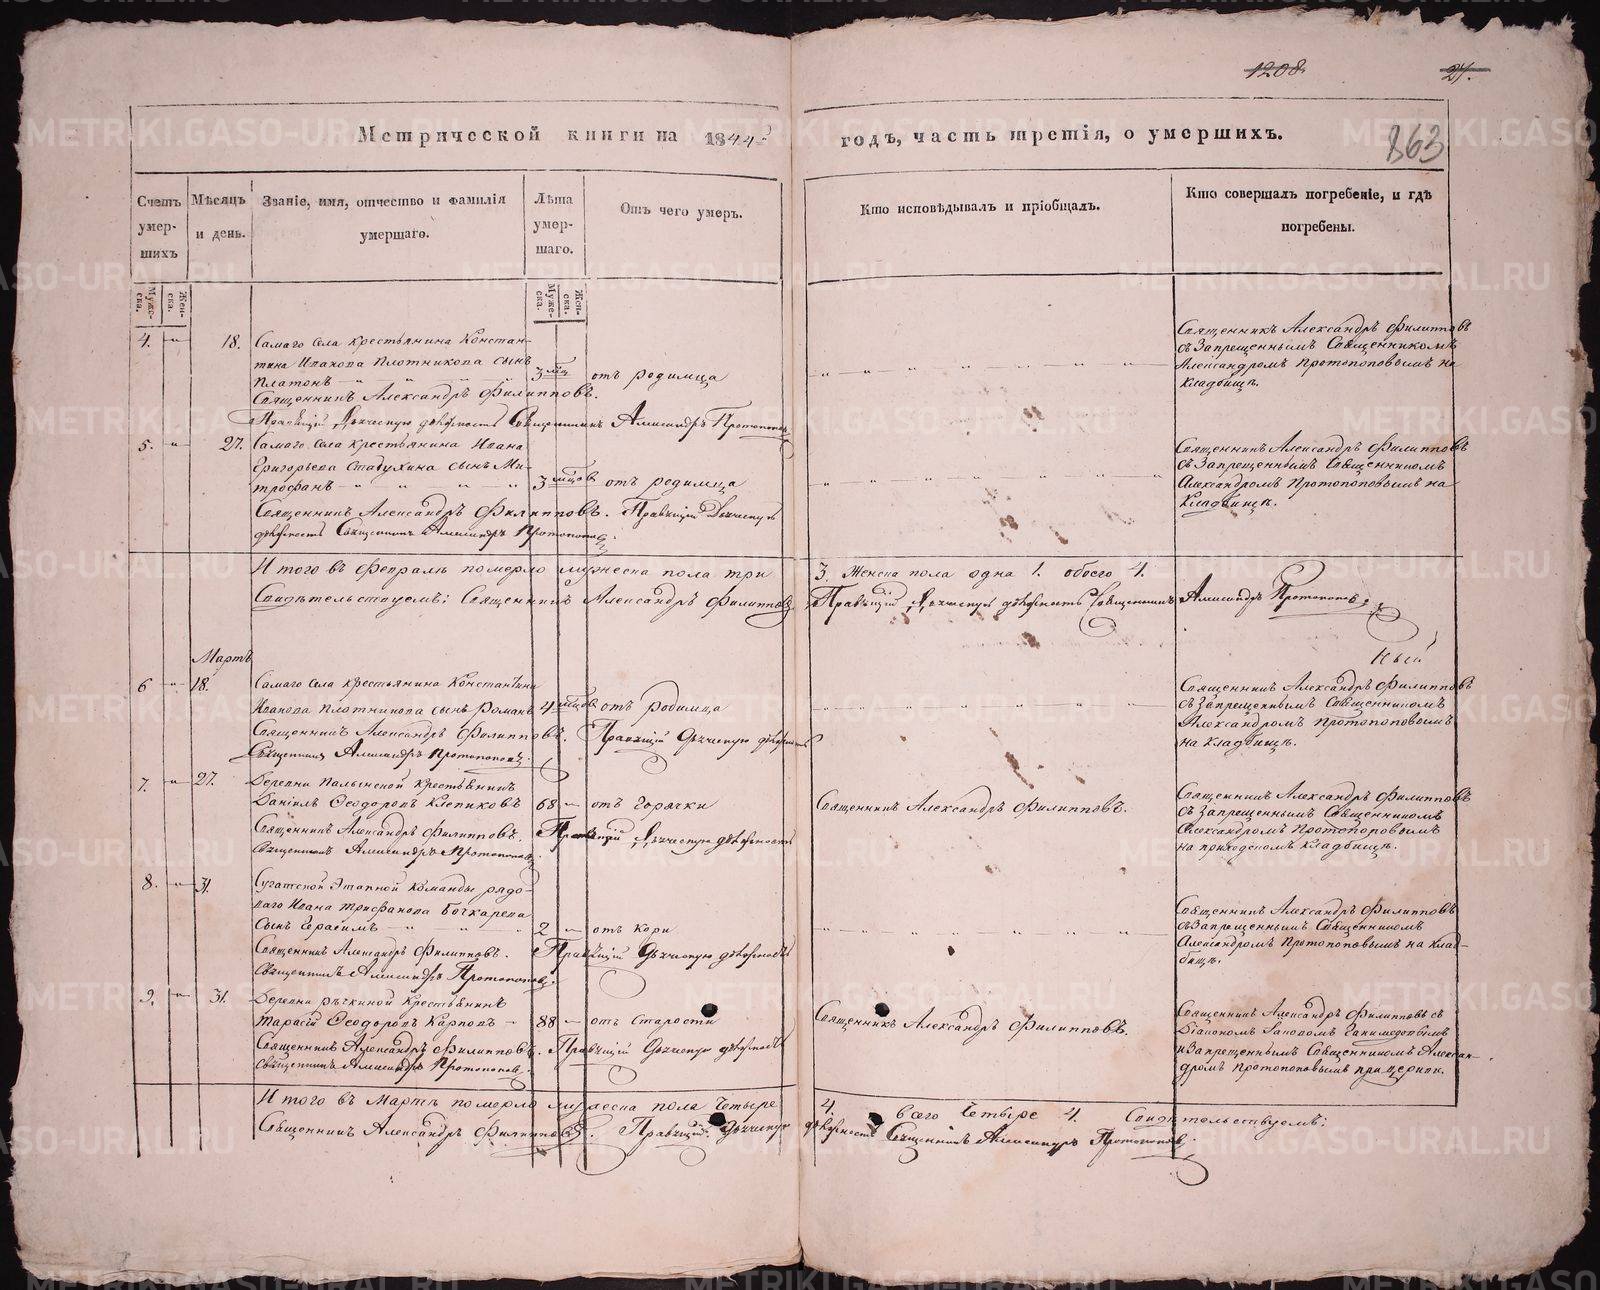 1208
27.
863
Метрической книги на 1844й годъ, часть третія, о умершихъ.
Счетъ умер-шихъ
Мѣсяцъ и день.
Званіе, имя, отчество и фамилія умершаго.
Лѣта умер-шаго.
Отъ чего умеръ.
Кто исповѣдывалъ и пріобщалъ.
Кто совершалъ погребеніе, и гдѣ погребены.
Муже-ска.
Жен-ска.
Муже-ска.
Жен-ска.
4. 18. Самаго села крестьянина Констан-
тина Иванова Плотникова сынъ
Платонъ 3 мц. отъ родимца
Священникъ Александръ Филипповъ.
Правящій Дьяческую должность Священникъ Александръ Протопоповъ
Священникъ Александръ Филипповъ
съ Запрещеннымъ Священникомъ
Александромъ Протопоповымъ на
Кладбищѣ.
5. 27. Самаго села крестьянина Ивана
Григорьева Стадухина сынъ Ми-
трофанъ 3 мцов отъ родимца
Священникъ Александръ Филипповъ. Правящій Дьяческую
должность Священникъ Александръ Протопоповъ.
Священникъ Александръ Филипповъ
съ Запрещеннымъ Священникомъ
Александромъ Протопоповымъ на
Кладбищѣ.
Итого въ Февралѣ померло мужеска пола три 3. Женска пола одна 1. обоего 4.
Свидѣтельствуемъ: Священникъ Александръ Филипповъ Правящій Дьяческую должность Священникъ Александръ Протопоповъ.
Мартъ
6 18. Самаго села крестьянина Константина
Иванова Плотникова сынъ Романъ 4 мцов отъ родимца
Священникъ Александръ Филипповъ. Правящій Дьяческую должность
Священникъ Александръ Протопоповъ.
Священникъ Александръ Филипповъ
съ Запрещеннымъ Священникомъ
Александромъ Протопоповымъ
на Кладбищѣ.
7. 27. Деревни крестьянинъ
Даніилъ Ѳеодоровъ Клепиковъ 68 отъ горячки
Священникъ Александръ Филипповъ. Правящій Дьяческую должность
Священникъ Александръ Протопоповъ.
Священникъ Александръ Филипповъ.
Священникъ Александръ Филипповъ
съ Запрещеннымъ Священникомъ
Александромъ Протопоповымъ
на приходскомъ Кладбищѣ.
8. 31. Сугатской Этапной Команды рядо-
ваго Ивана Трифанова Бочкарева
сынъ Герасимъ 2 отъ кори
Священникъ Александръ Филипповъ. Правящій Дьяческую должность
Священникъ Александръ Протопоповъ.
Священникъ Александръ Филипповъ
съ Запрещеннымъ Священникомъ
Александромъ Протопоповымъ на клад-
бищѣ.
9. 31. Деревни Рѣчкиной крестьянинъ
Тарасій Ѳеодоровъ Карповъ 88 отъ старости
Священникъ Александръ Филипповъ. Правящій Дьяческую должность
Священникъ Александръ Протопоповъ.
Священникъ Александръ Филипповъ.
Священникъ Александръ Филипповъ съ
Діакономъ Ганимедовымъ
и Запрещеннымъ Священникомъ Алексан-
дромъ Протопоповымъ при церкви.
Итого въ Мартѣ померло мужеска пола Четыре 4. всего Четыре 4. Свидѣтельствуемъ:
Священникъ Александръ Филипповъ. Правящій Дьяческую должность Священникъ Александръ Протопоповъ.
METRIKI.GASO-URAL.RU